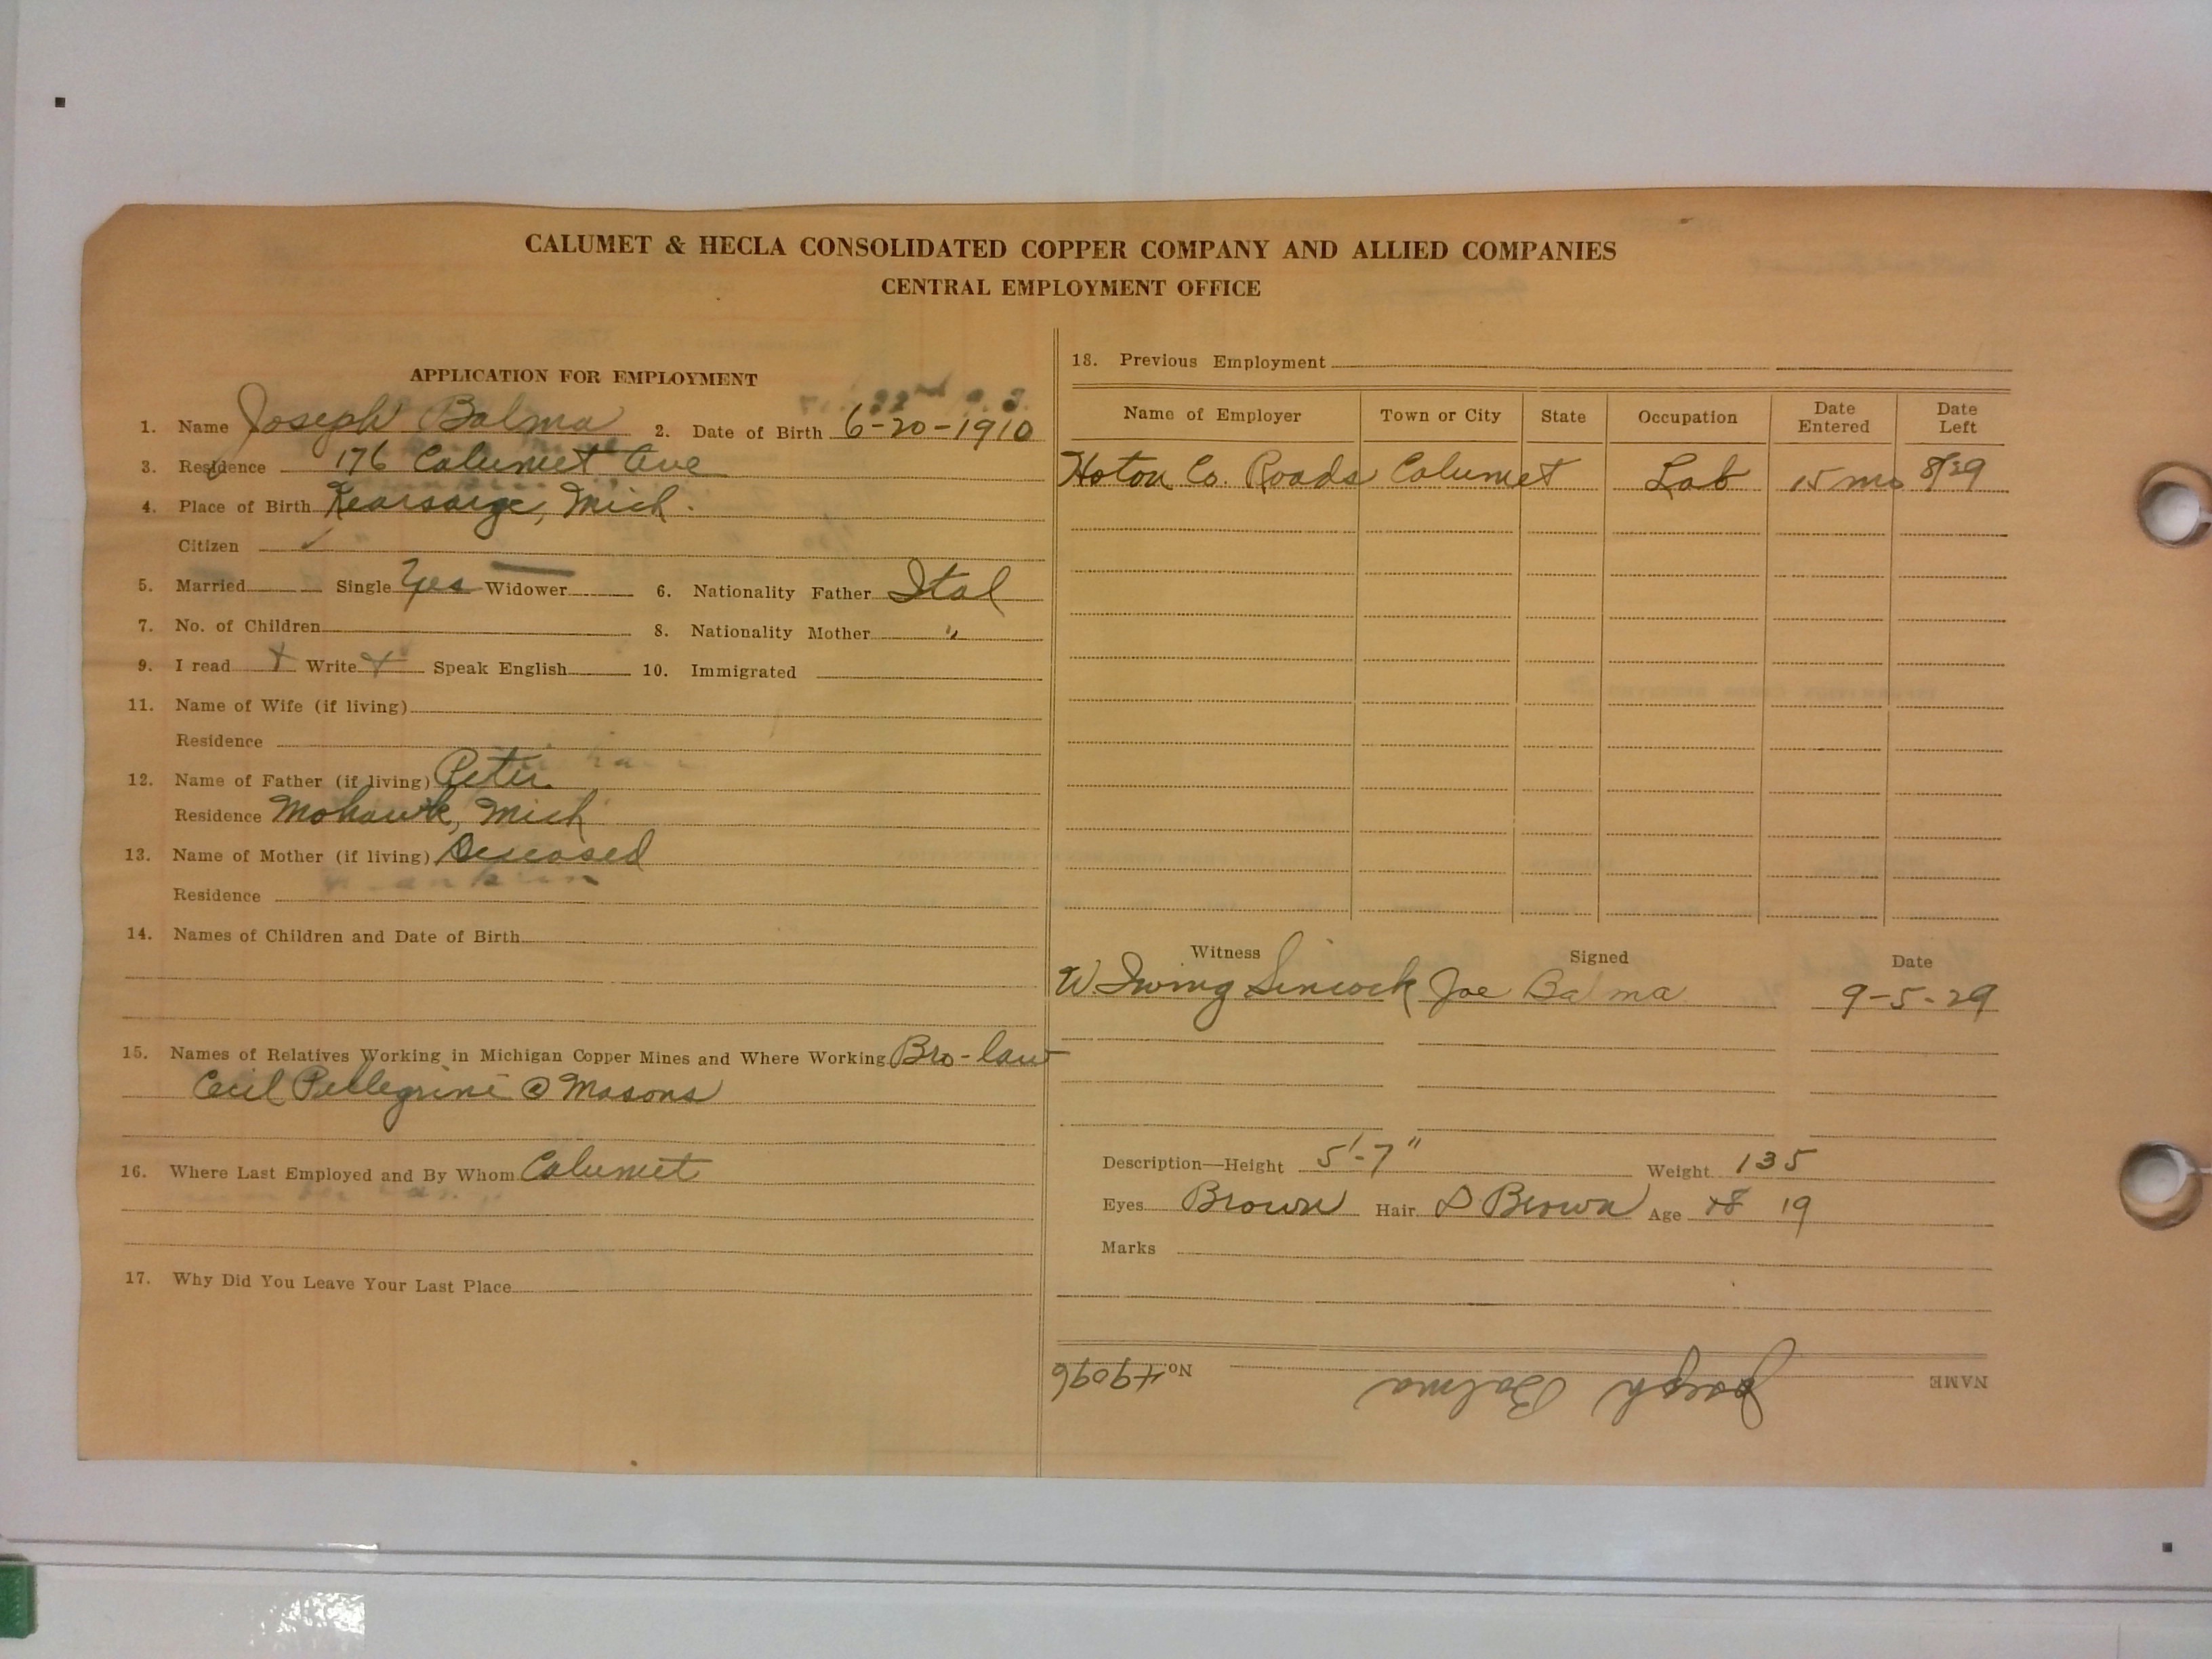 CALUMET & HECLA CONSOLIDATED COPPER COMPANY AND ALLIED COMPANIES
CENTRAL EMPLOYMENT OFFICE
APPLICATION FOR EMPLOYMENT
1. Name Joseph Balma 2. Date of Birth 6-20-1910
3. Residence 176 Calumet Ave
4. Place of Birth Kearsarge, Mich.
Citizen ✓ "
5. Married Single Yes Widower 6. Nationality Father Ital
7. No. of Children 8. Nationality Mother "
9. I read + Write + Speak English 10. Immigrated
11. Name of Wife (if living)
Residence
12. Name of Father (if living) Peter
Residence Mohawk, Mich
13. Name of Mother (if living) Deceased
Residence
14. Names of Children and Date of Birth
15. Names of Relatives Working in Michigan Copper Mines and Where Working Bro-law
Cecil Pellegrini @ Masons
16. Where Last Employed and By Whom Calumet
17. Why Did You Leave Your Last Place
18. Previous Employment
Name of Employer Town or City State Occupation Date Entered Date Left
Hoton Co. Roads Calumet Lab 15 mo 8/29
Witness Signed Date
W Irving Sincock Joe Balma 9-5-29
Description—Height 5'-7" Weight 135
Eyes Brown Hair D Brown Age 18 19
Marks
NAME Joseph Balma No. 49096